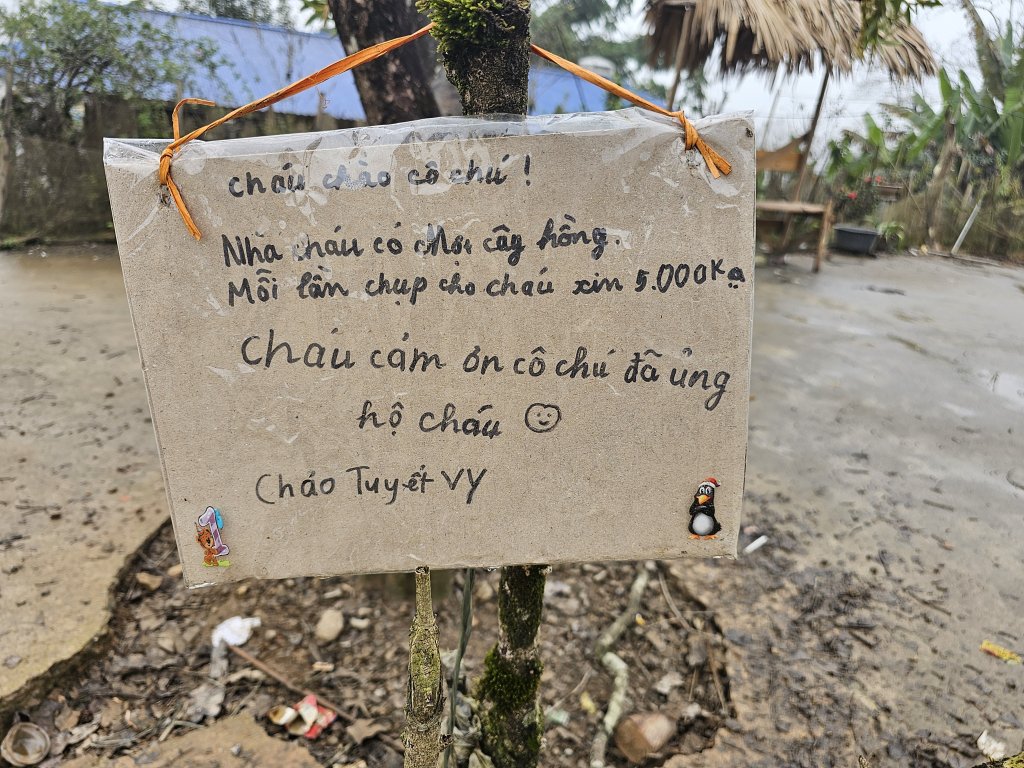 cháu chào cô chú !
Nhà cháu có một cây hồng.
Mỗi lần chụp cho cháu xin 5.000K ạ
Cháu cảm ơn cô chú đã ủng
hộ cháu
Chảo Tuyết VY
1